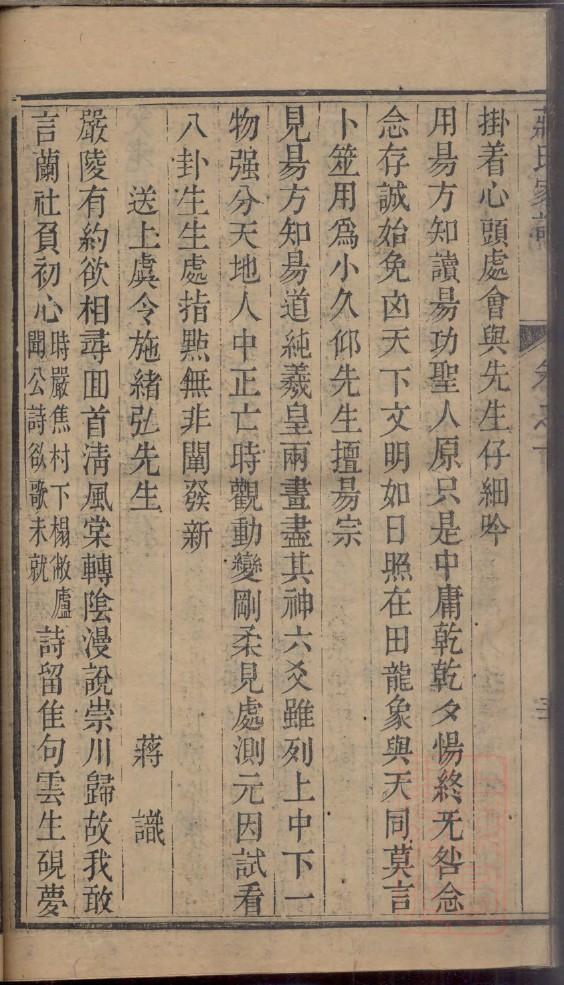 掛着心頭處會與先生仔細吟
用易方知讀易功聖人原只是中庸乾乾夕惕終无咎念
念存誠始免凶天下文明如日照在田龍象與天同莫言
卜筮用爲小久仰先生擅易宗
見易方知易道純羲皇兩畫盡其神六爻雖列上中下一
物强分天地人中正亡時觀動變剛柔見處測元因試看
八卦生生處指㸃無非闡發新
送上虞令施緒弘先生
蔣識
嚴陵有約欲相尋囬首淸風棠轉陰漫說崇川歸故我敢
言蘭社負初心時嚴焦村下榻敝廬聞公詩欲歌未就詩留隹句雲生硯夢